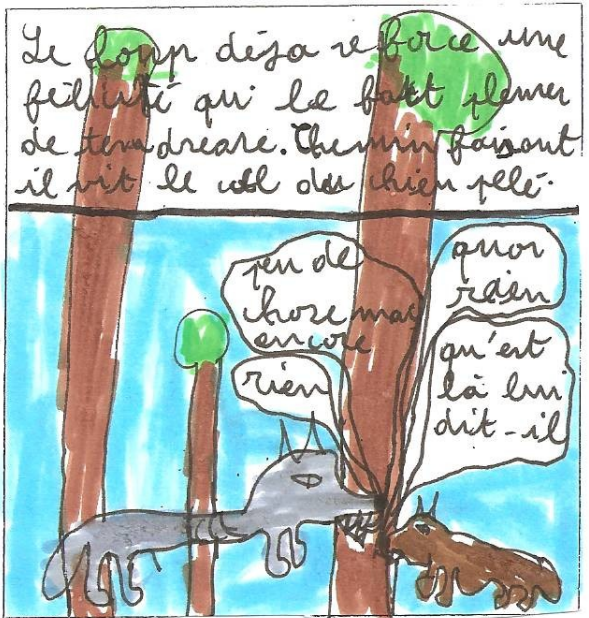 Le loup déja se force une
félicité qui le fait pleurer
de tendreare. Chemin faisant
il vit le col du chien pelé.
peu de
chose mais
encore
rien
quoi
rien
qu'est
là lui
dit-il